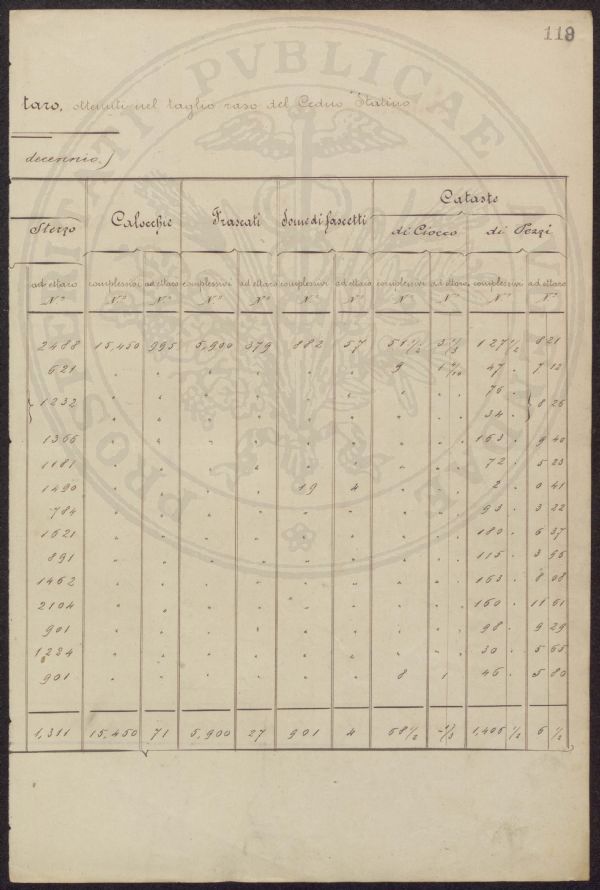 119
taro, ottenuti nel taglio raso del Ceduo Statino
decennio.)
Cataste
Sterzo Calocchie Frascati Some di fascetti di Ciocco di Pezzi
ad ettaro complessivi ad ettaro complessivi ad ettaro complessivi ad ettaro complessivi ad ettaro complessivi ad ettaro
N.º N.º N.º N.º N.º N.º N.º N.º N.º N.º N.º
2488 15,450 995 5,900 379 882 57 51 1/2 3 1/3 127 1/2 8 21
621 " " " " " " 9 1 47 " 7 12
76 "
1232 " " " " " " " " 8 26
34 "
1366 " " " " " " " " 163 " 9 40
1181 " " " " " " " " 72 " 5 23
1490 " " " " 19 4 " " 2 " 0 41
784 " " " " " " " " 93 " 3 32
1621 " " " " " " " " 180 " 6 37
891 " " " " " " " " 115 " 3 95
1462 " " " " " " " " 163 " 8 08
2104 " " " " " " " " 160 " 11 61
901 " " " " " " " " 98 " 9 29
1234 " " " " " " " " 30 " 5 65
901 " " " " " " 8 1 46 " 5 80
1,311 15,450 71 5,900 27 901 4 68 1/2 1/3 1,406 1/2 6 1/2
PVBLICAE
PROSPERITATI